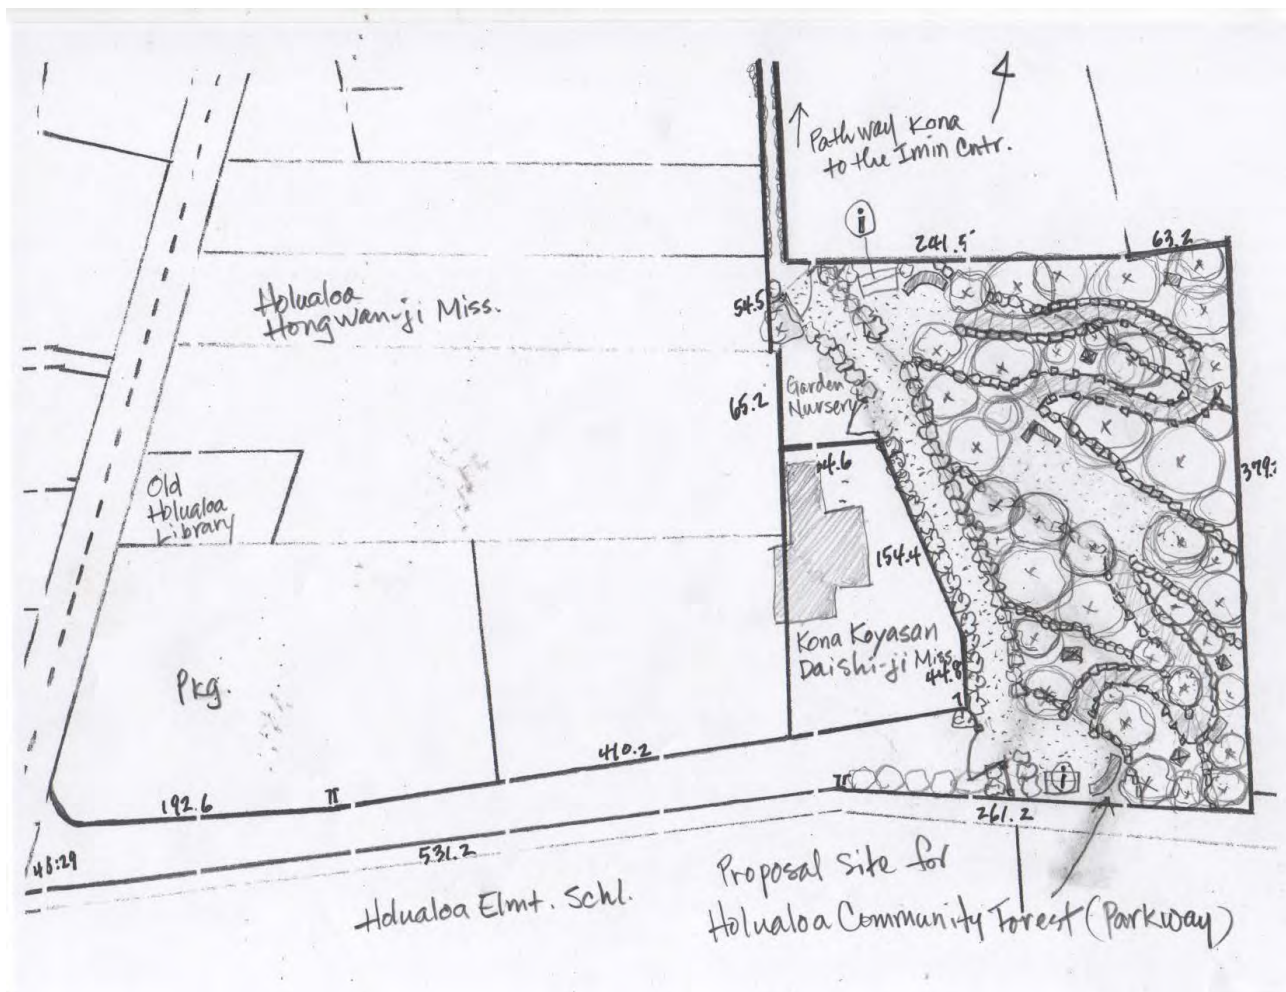 4
Pathway Kona
to the Imin Cntr.
i
241.5
63.2
Holualoa
Hongwan-ji Miss.
54.5
65.2
Garden
Nursery
379.
Old
Holualoa
Library
154.4
Kona Koyasan
Daishi-ji Miss.
44.8
Pkg.
410.2
192.6
i
261.2
531.2
Proposal Site for
Holualoa Elmt. Schl.
Holualoa Community Forest (Parkway)